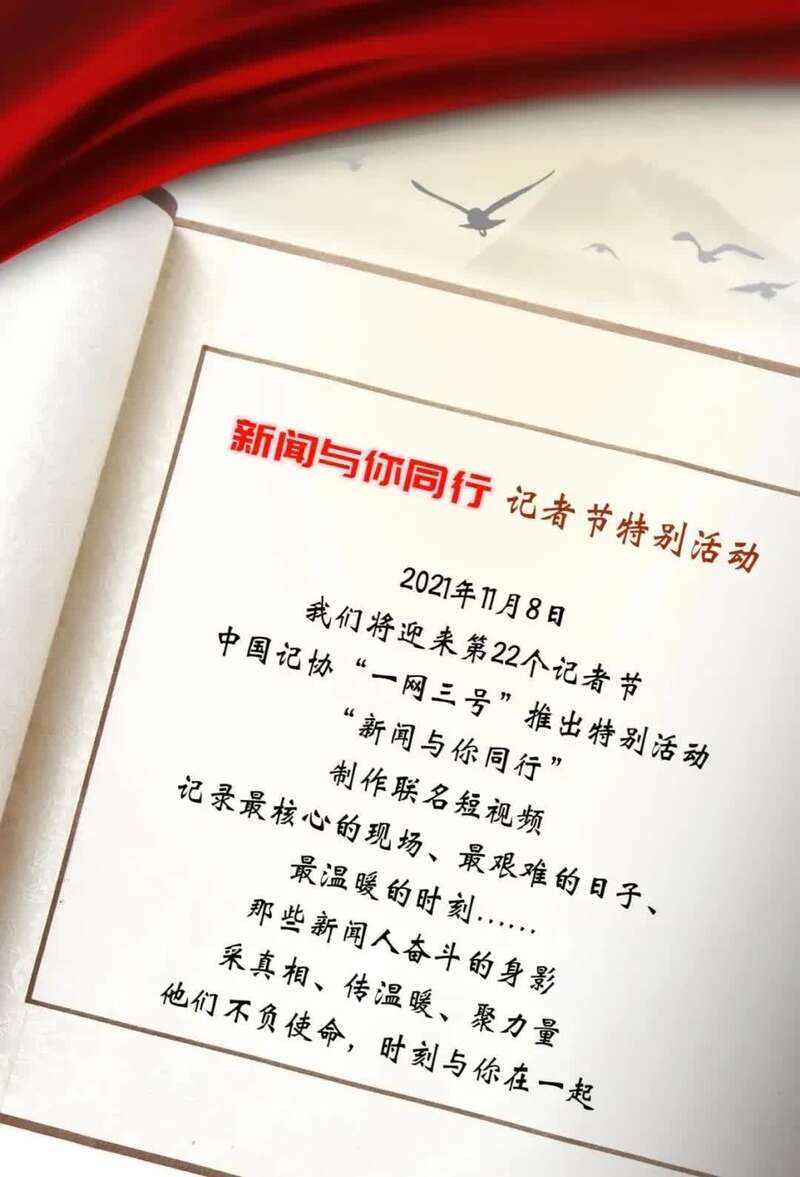 新闻与你同行 记者节特别活动
2021年11月8日
我们将迎来第22个记者节
中国记协“一网三号”推出特别活动
“新闻与你同行”
制作联名短视频
记录最核心的现场、最艰难的日子、
最温暖的时刻……
那些新闻人奋斗的身影
采真相、传温暖、聚力量
他们不负使命，时刻与你在一起